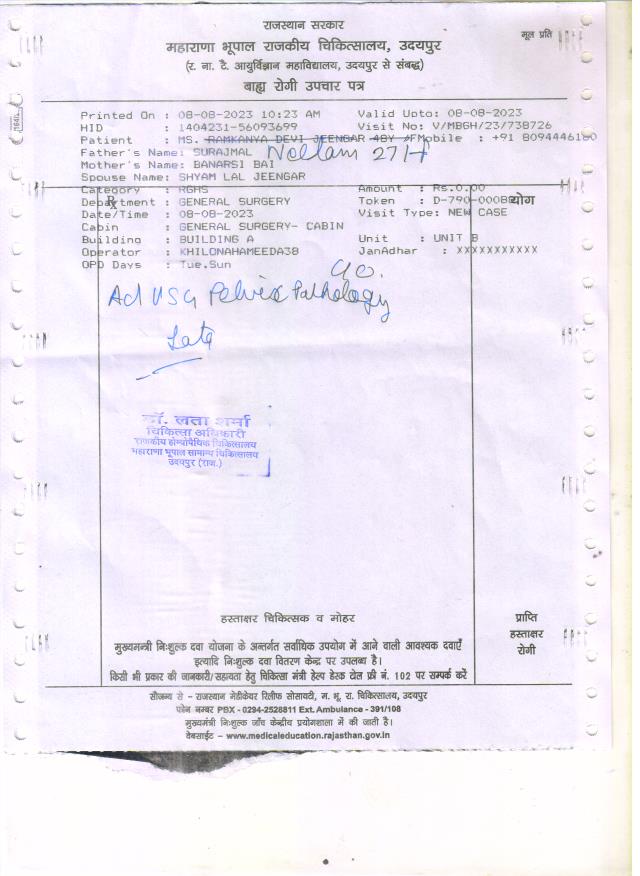 राजस्थान सरकार
मूल प्रति
महाराणा भूपाल राजकीय चिकित्सालय, उदयपुर
(र. ना. टै. आयुर्विज्ञान महाविद्यालय, उदयपुर से संबद्ध)
बाह्य रोगी उपचार पत्र
Printed On : 08-08-2023 10:23 AM Valid Upto: 08-08-2023
HID : 1404231-56093699 Visit No: V/MBGH/23/738726
Patient : MS. RAMKANYA DEVI JEENGAR 48Y /FMobile : +91 8094446180
Father's Name: SURAJMAL Neelam 27/F
Mother's Name: BANARSI BAI
Spouse Name: SHYAM LAL JEENGAR
Category : RGHS Amount : Rs.0.00
Department : GENERAL SURGERY Token : D-790-00088 योग
Date/Time : 08-08-2023 Visit Type: NEW CASE
Cabin : GENERAL SURGERY- CABIN
Building : BUILDING A Unit : UNIT B
Operator : KHILONAHAMEEDA38 JanAdhar : XXXXXXXXXXX
OPD Days : Tue,Sun
Ad USG Pelvic Pathology
Lata
डॉ. लता शर्मा
चिकित्सा अधिकारी
राजकीय होम्योपैथिक चिकित्सालय
महाराणा भूपाल सामान्य चिकित्सालय
उदयपुर (राज.)
हस्ताक्षर चिकित्सक व मोहर
प्राप्ति
हस्ताक्षर
रोगी
मुख्यमन्त्री निःशुल्क दवा योजना के अन्तर्गत सर्वाधिक उपयोग में आने वाली आवश्यक दवाएँ
इत्यादि निःशुल्क दवा वितरण केन्द्र पर उपलब्ध है।
किसी भी प्रकार की जानकारी/सहायता हेतु चिकित्सा मंत्री हेल्प डेस्क टोल फ्री नं. 102 पर सम्पर्क करें
सौजन्य से - राजस्थान मेडीकेयर रिलीफ सोसायटी, म. भू. रा. चिकित्सालय, उदयपुर
फोन नम्बर PBX - 0294-2528811 Ext. Ambulance - 391/108
मुख्यमंत्री निःशुल्क जाँच केन्द्रीय प्रयोगशाला में की जाती है।
वेबसाईट - www.medicaleducation.rajasthan.gov.in